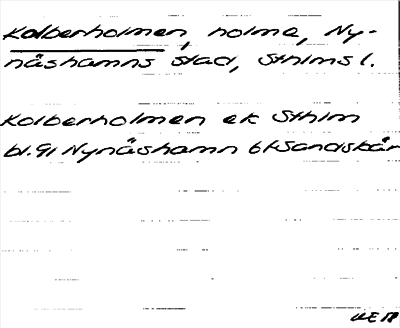 Kolberholmen, holme, Ny-
näshamns stad, Sthlms l.
Kolberholmen ek Sthlm
bl. 91 Nynäshamn 6k Sandskär